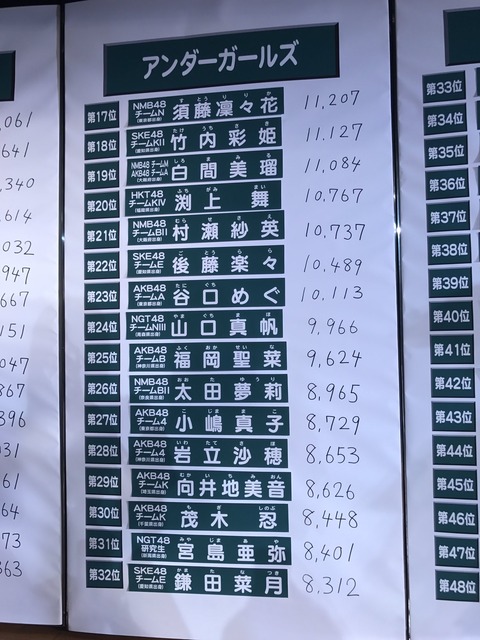 アンダーガールズ
第17位 NMB48 チームN 須藤凜々花 11,207
第18位 SKE48 チームKII 竹内彩姫 11,127
第19位 NMB48 チームM AKB48 チームA 白間美瑠 11,084
第20位 HKT48 チームKIV 渕上舞 10,767
第21位 NMB48 チームBII 村瀬紗英 10,737
第22位 SKE48 チームE 後藤楽々 10,489
第23位 AKB48 チームA 谷口めぐ 10,113
第24位 NGT48 チームNIII 山口真帆 9,966
第25位 AKB48 チーム8 福岡聖菜 9,624
第26位 NMB48 チームBII 太田夢莉 8,965
第27位 AKB48 チーム4 小嶋真子 8,729
第28位 AKB48 チーム4 岩立沙穂 8,653
第29位 AKB48 チームK 向井地美音 8,626
第30位 AKB48 チームK 茂木忍 8,448
第31位 NGT48 研究生 宮島亜弥 8,401
第32位 SKE48 チームE 鎌田菜月 8,312
第33位
第34位
第35位
第36位
第37位
第38位
第39位
第40位
第41位
第42位
第43位
第44位
第45位
第46位
第47位
第48位